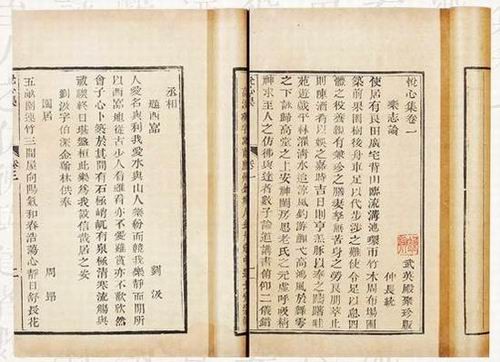 悅心集卷一 武英殿聚珍版
樂志論 仲長統
使居有良田廣宅背山臨流溝池環帀竹木周布場圃
築前果園樹後舟車足以代步涉之難使令足以息四
體之役養親有兼珍之膳妻孥無苦身之勞良朋萃止
則陳酒肴以娛之嘉時吉日則烹羔豚以奉之躊躇畦
苑遊戲平林濯清水追涼風釣游鯉弋高鴻風於舞雩
之下詠歸高堂之上安神閨房思老氏之元虛呼吸精
和求至人之仿佛與達者數子論道講書俯仰二儀錯
丞相
題西窩 劉汲
人愛名與利我愛水與山人樂紛而競我樂靜而閒所
以西窩地從古少人看雖看亦不愛雖賞亦不歡欣然
會予心卜築於其間有石極峭屼有泉極清寒流觴與
祓禊終日堪盤桓此樂為我設信哉居之安
劉汲字伯深金翰林供奉
閒居 周昂
五畝園連竹三間屋向陽氣和春浩蕩心靜日舒長花